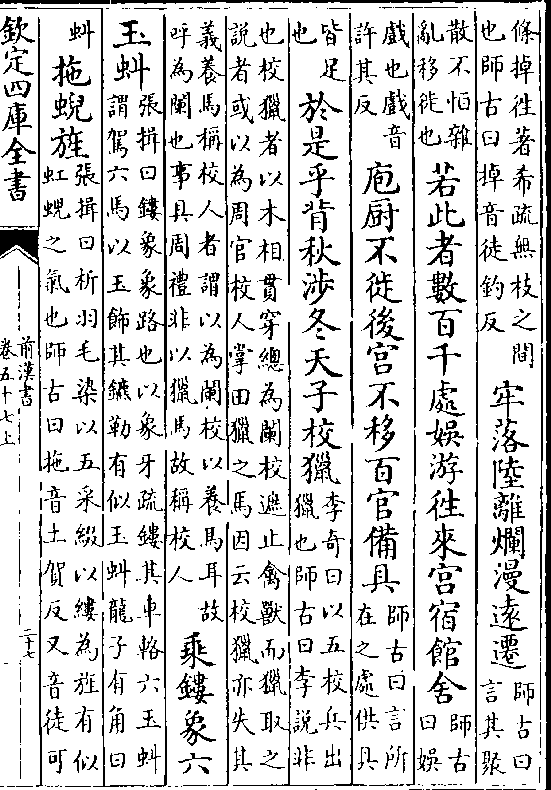 條掉徃著希疏無枝之間
也師古曰掉音徒釣反
牢落陸離爛漫遠遷
師古曰
言其聚
散不怕雜
亂移徙也
若此者數百千處娛游徃來宮宿館舍
師古
曰娛
戲也戲音
許其反
庖厨不徙後宮不移百官備具
師古曰言所
在之處供具
皆足
也
於是乎背秋涉冬天子校獵
李奇曰以五校兵出
獵也師古曰李説非
也校獵者以木相貫穿總為闌校遮止禽獸而獵取之
說者或以為周官校人掌田獵之馬因云校獵亦失其
義養馬稱校人者謂以為闌校以養馬耳故
呼為闌也事具周禮非以獵馬故稱校人
乘鏤象六
玉虯
張揖曰鏤象象路也以象牙疏鏤其車輅六玉虯
謂駕六馬以玉飾其鑣勒有似玉虯龍子有角曰
虯
拖蜺旌
張揖曰析羽毛染以五采綴以縷為旌有似
虹蜺之氣也師古曰拖音土賀反又音徒可
欽定四庫全書
前漢書
卷五十七上
二十七